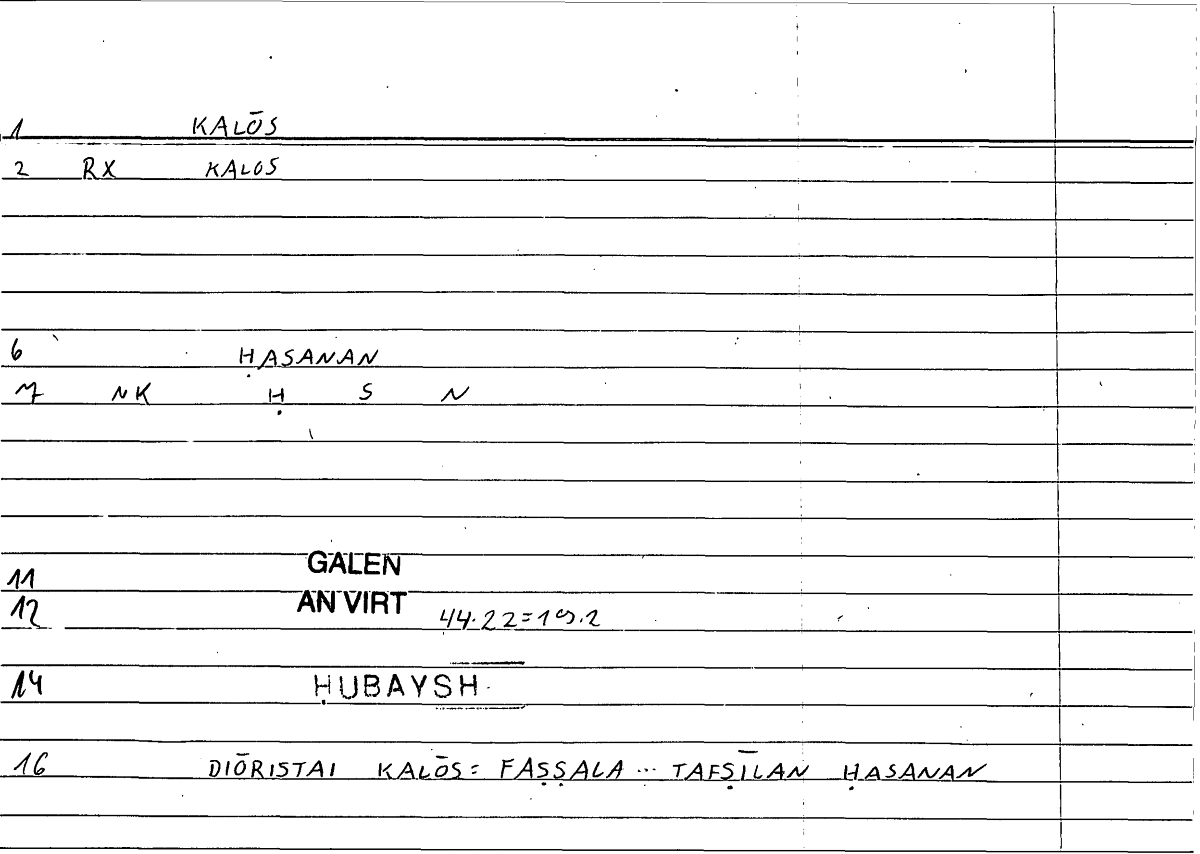 1 KALŌS
2 RX KALOS
6 ḤASANAN
7 NK Ḥ S N
11 GALEN
12 AN VIRT 44.22=19.2
14 ḤUBAYSH
16 DIŌRISTAI KALŌS= FAṢṢALA ... TAFṢĪLAN ḤASANAN